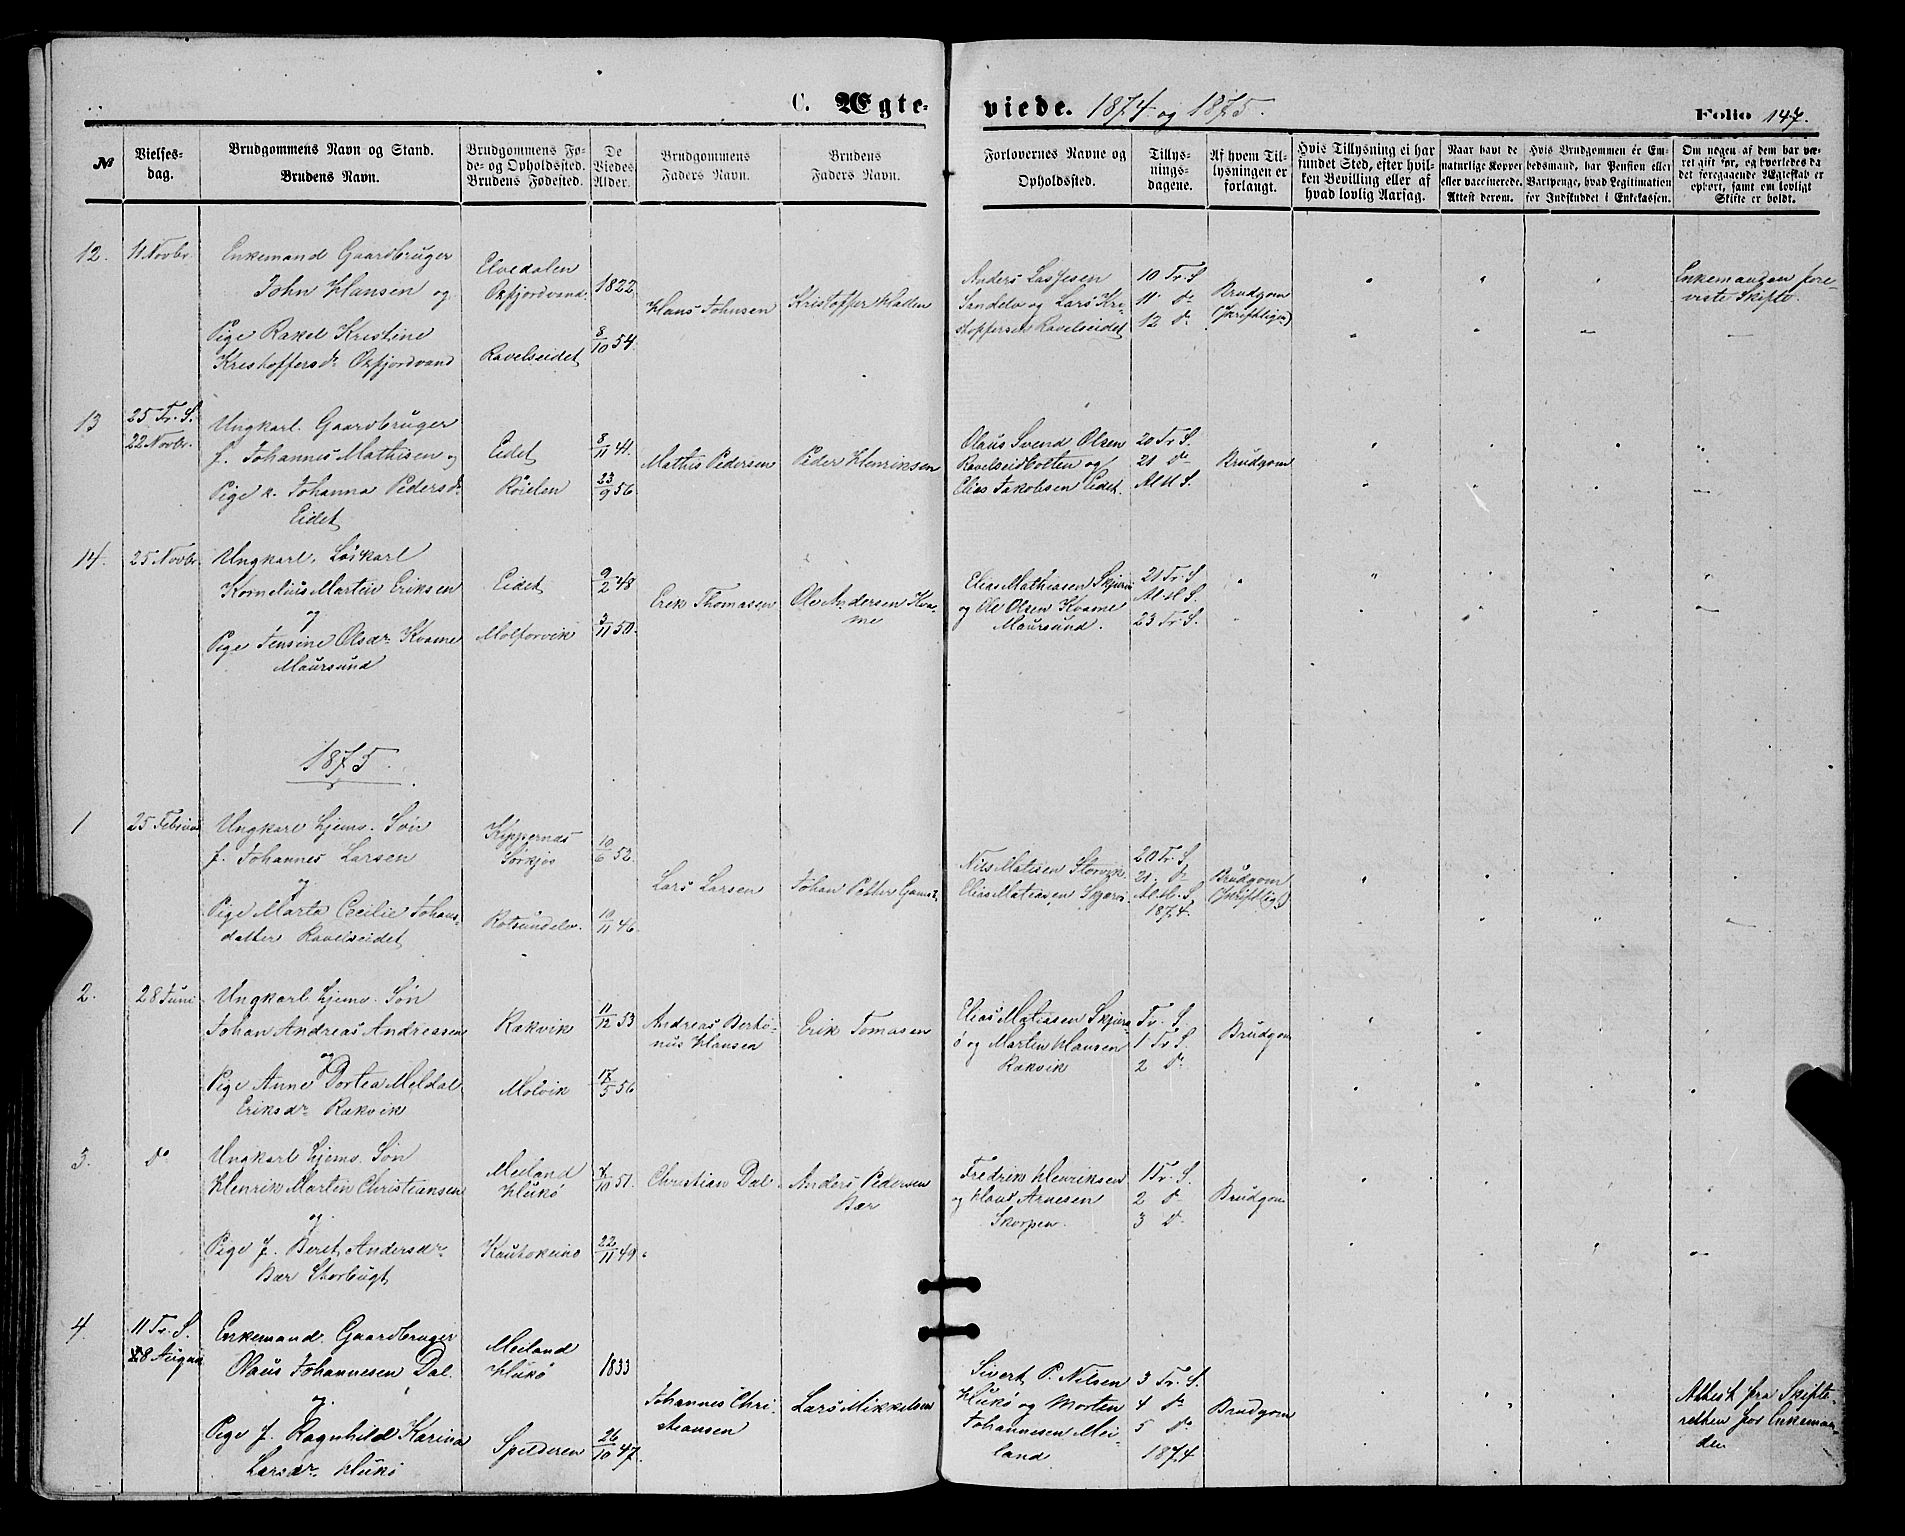 C. Ægte-
viede. 1874 og 1875.
Folio 147.
№
Vielses-
dag.
Brudgommens Navn og Stand.
Brudens Navn.
Brudgommens Fø-
de- og Opholdssted.
Brudens Fødested.
De
Viedes
Alder.
Brudgommens
Faders Navn.
Brudens
Faders Navn.
Forlovernes Navne og
Opholdssted.
Tillys-
nings-
dagene.
Af hvem Til-
lysningen er
forlangt.
Hvis Tillysning ei har
fundet Sted, efter hvil-
ken Bevilling eller af
hvad lovlig Aarsag.
Naar havt de
naturlige Kopper
eller vaccinerede.
Attest derom.
Hvis Brudgommen er Em-
bedsmand, har Pension eller
Vartpenge, hvad Legitimation
for Indskuddet i Enkekassen.
Om nogen af dem har væ-
ret gift før, og hvorledes da
det foregaaende Ægteskab er
ophørt, samt om lovligt
Skifte er holdt.
12. 11 Novbr.
Enkemand Gaardbruger
John Hansen og
Pige Rakel Kristine
Kristoffersdr Oxfjordvand
Elvedalen
Oxfjordvand.
Ravelseidet
1822
8/10 54.
Hans Johnsen
Kristoffer Hallen
Anders Lassesen
Sandelv og Lars Kri-
stoffersen Ravelseidet
10 Tr. S.
11 do
12 do
Brudgom
(Skriftlign)
Enkemanden fore-
viste Skifte.
13
25 Tr. S.
22 Novbr.
Ungkarl. Gaardbruger
f. Johannes Mathisen og
Pige k. Johanna Pedersdr
Eidet
Eidet
Röielen
8/11 41.
23/9 56
Mathis Pedersen
Peder Henriksen
Olaus Svend Olsen
Ravelseidbotten og
Elias Jakobsen Eidet.
20 Tr. S.
21 do
Al. H. S.
Brudgom
14. 25 Novbr.
Ungkarl. Löskarl
Kornelius Martin Eriksen
og
Pige Jensine Olsdr Kvame
Maursund
Eidet
Molforvik
9/2 48
3/11 50.
Erik Thomasen
Ole Andersen Kva-
me
Elias Mathiasen Skjærvö
og Ole Olsen Kvame
Maursund.
21 Tr. S.
Al. H. S.
23 Tr. S.
1875.
1 25 Februar
Ungkarl hjemv. Sön
f. Johannes Larsen
og
Pige Marta Cecilie Johans-
datter Ravelseidet
Kippernæs
Sörkjos
Rotsundelv.
10/6 52.
10/11 46
Lars Larsen
Johan Petter
Nils Matisen Storvik
Elias Matiasen Skjærvö
20 Tr. S.
21. do
Al. H. S.
1874.
Brudgom
(Skriftligt)
2. 28 Juni
Ungkarl hjemv. Sön
Johan Andreas Andreassen
og
Pige Anne Dortea Meldal
Eriksdr Rakvik
Rakvik
Molvik
11/12 53
17/5 56
Andreas Berto-
nius Hansen
Erik Tomasen
Elias Matiasen Skjærv-
ö og Marten Hansen
Rakvik
Tr. S.
1 Tr. S.
2 do
Brudgom
3. do
Ungkarl hjemv. Sön
Henrik Martin Christiansen
og
Pige f. Beret Andersdr
Bær Storbugt
Meiland
Hukö
Kautokeino
7/10 51.
22/11 49
Christian Dal
Anders Pedersen
Bær
Fredrik Henriksen
og Hans Arnesen
Skorpen.
1 Tr. S.
2 do
3 do
Brudgom
4
11 Tr. S.
8 August
Enkemand. Gaardbruger
Olaus Johannesen Dal.
og
Pige f. Ragnhild Karina
Larsdr Hukö
Meiland
Hukö
Spilderen
1833
26/10 47.
Johannes Chri-
stiansen
Lars Mikkelsen
Sivert P. Nilsen
Hukö og Morten
Johannesen Mei-
land
3 Tr. S.
4 do
5 do
1874
Brudgom
Attest fra Skifte-
retten for Enkeman-
den